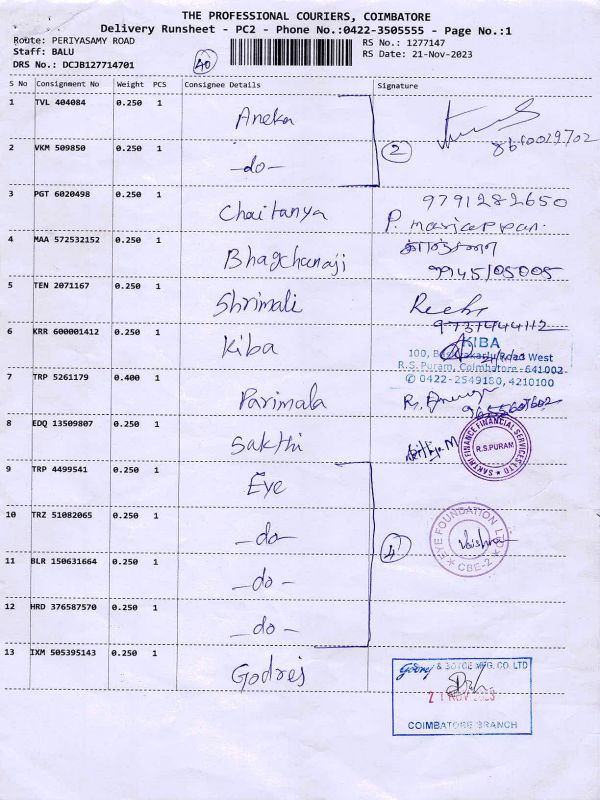 THE PROFESSIONAL COURIERS, COIMBATORE
Delivery Runsheet - PC2 - Phone No.:0422-3505555 - Page No.:1
Route: PERIYASAMY ROAD
Staff: BALU
DRS No.: DCJB127714701
40
RS No.: 1277147
RS Date: 21-Nov-2023
S No Consignment No Weight PCS Consignee Details Signature
1 TVL 404084 0.250 1 Aneka
2 VKM 509850 0.250 1 -do- 2
3 PGT 6020498 0.250 1 Chaitanya 9791282650
P. mariappan.
4 MAA 572532152 0.250 1 Bhagchanaji
9945105005
5 TEN 2071167 0.250 1 Shrimali
6 KRR 600001412 0.250 1 Kiba
KIBA
Road West
R.S. Puram, Coimbatore-641002
✆ 0422-2549180, 4210100
7 TRP 5261179 0.400 1 Parimala
8 EDQ 13509807 0.250 1 Sakthi
SAKTHI FINANCE FINANCIAL SERVICES LTD
R.S.PURAM
9 TRP 4499541 0.250 1 Eye
10 TRZ 51082065 0.250 1 -do- 4
EYE FOUNDATION LTD
CBE-2
11 BLR 150631664 0.250 1 -do-
12 HRD 376587570 0.250 1 -do-
13 IXM 505395143 0.250 1 Godrej
Godrej & BOYCE MFG. CO. LTD
21 NOV 2023
COIMBATORE BRANCH